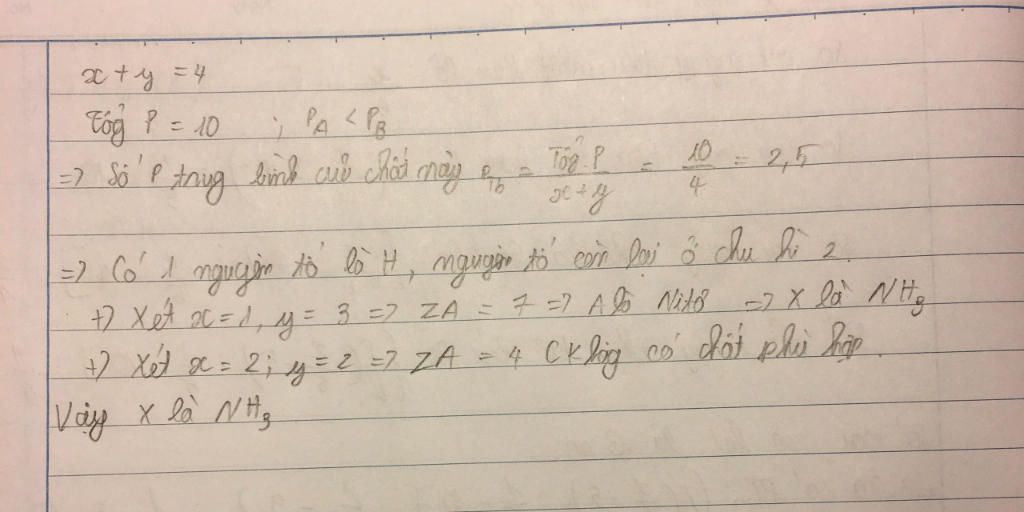 x + y = 4
Tổg P = 10 ; P_A < P_B
=> Số P trug bình củả chất này P_Tb = Tổg P / x + y = 10 / 4 = 2,5
=> Có 1 nguyên tố là H, nguyên tố còn lại ở chu kì 2.
+) Xét x = 1, y = 3 => ZA = 7 => A là Nitơ => X là NH3
+) Xét x = 2; y = 2 => ZA = 4 (Khôg có chất phù hợp.
Vậy X là NH3